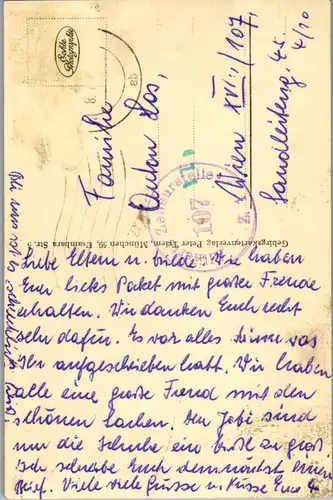 Echte
Photographie
Familie
Anton Los,
Wien XVII/107,
Sandleiteng. 45
4/10
Zensurstelle
107
Gebirgskartenverlag Peter Triem, München 59, Usambara Str. 5
Liebe Eltern u. Wir haben
Euer liebes Paket mit großer Freude
erhalten. Wir danken Euch recht
sehr dafür. Es war alles drinn was
Ihr aufgeschrieben habt. Wir haben
alle eine große Freud mit den
schönen Sachen. Den Jobi sind
nur die Schuhe ein bißl zu groß
Ich schreibe Euch demnächst einen
Brief. Viele viele Grüsse u. Küsse Eure
Bei uns ist es